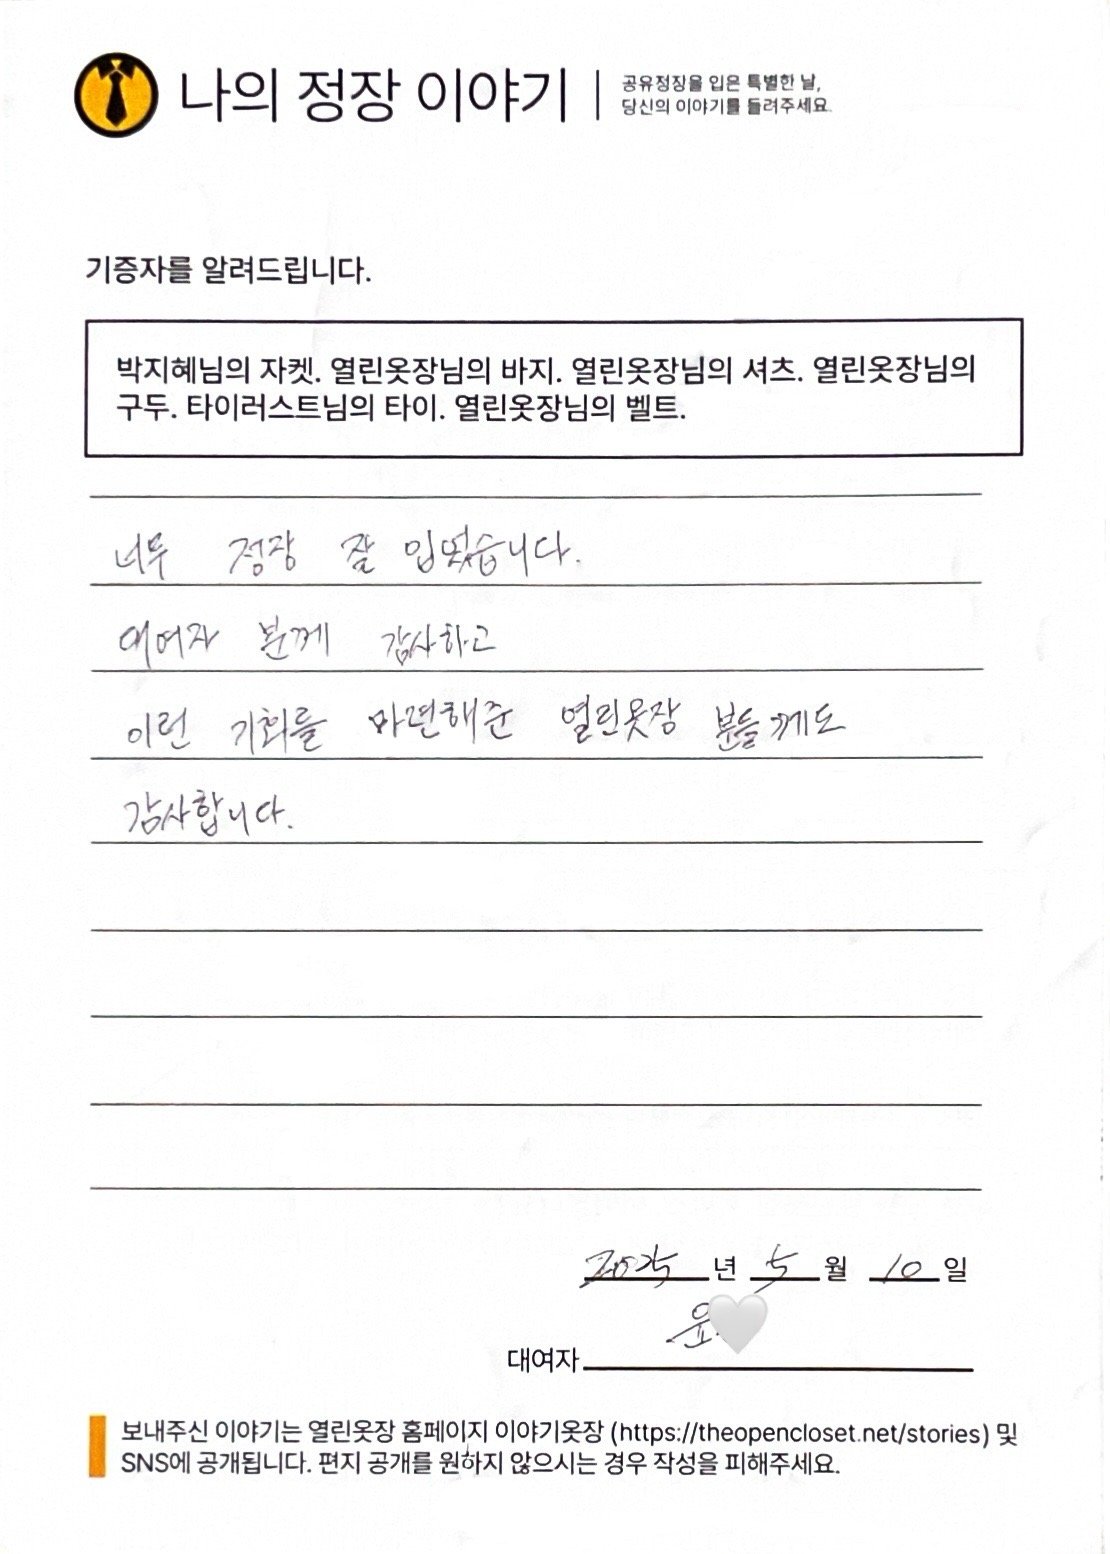 나의 정장 이야기
공유정장을 입은 특별한 날,
당신의 이야기를 들려주세요.
기증자를 알려드립니다.
박지혜님의 자켓. 열린옷장님의 바지. 열린옷장님의 셔츠. 열린옷장님의
구두. 타이러스트님의 타이. 열린옷장님의 벨트.
너무 정장 잘 입었습니다.
대여자 분께 감사하고
이런 기회를 마련해준 열린옷장 분들께도
감사합니다.
2025 년 5 월 10 일
윤
대여자
보내주신 이야기는 열린옷장 홈페이지 이야기옷장 (https://theopencloset.net/stories) 및
SNS에 공개됩니다. 편지 공개를 원하지 않으시는 경우 작성을 피해주세요.